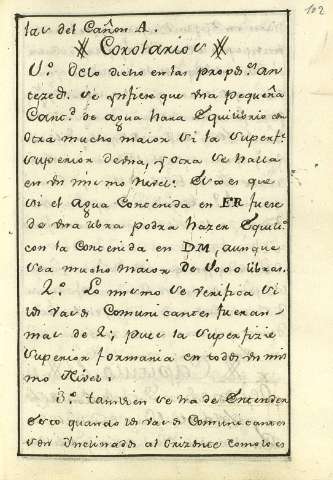 102
las del Cañon A.
Corolarios
1.º Delo dicho en las propos.s an-
tezeds. se ynfiere que una pequeña
Cantd. de agua hara Equilibrio con
otra mucho maior si la superfe.
superior de una, y otra se halla
en un mismo Nivel: Esto es que
si el Agua Contenida en FR fuere
de una libra podra hazer Equilio.
con la Contenida en DM, aunque
sea mucho maior de 1000 libras.
2.º Lo mismo se verifica si
los vasos Comunicantes fueran
mas de 2; pues la Superfizie
superior formaria en todos un mis
mo Nivel:
3.º tambien se ha de Entender
Esto quando los vasos Comunicantes
son Ynclinados al Orizonte como los